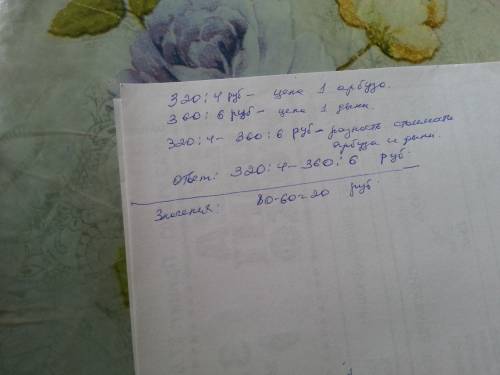 320:4 руб - цена 1 арбуза.
360:6 руб - цена 1 дыни.
320:4 - 360:6 руб - разность стоимости
арбуза и дыни.
Ответ: 320:4 - 360:6 руб.
Значения: 80-60=20 руб.